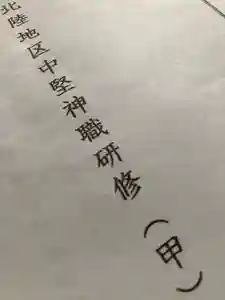 北陸地区中堅神職研修(甲)